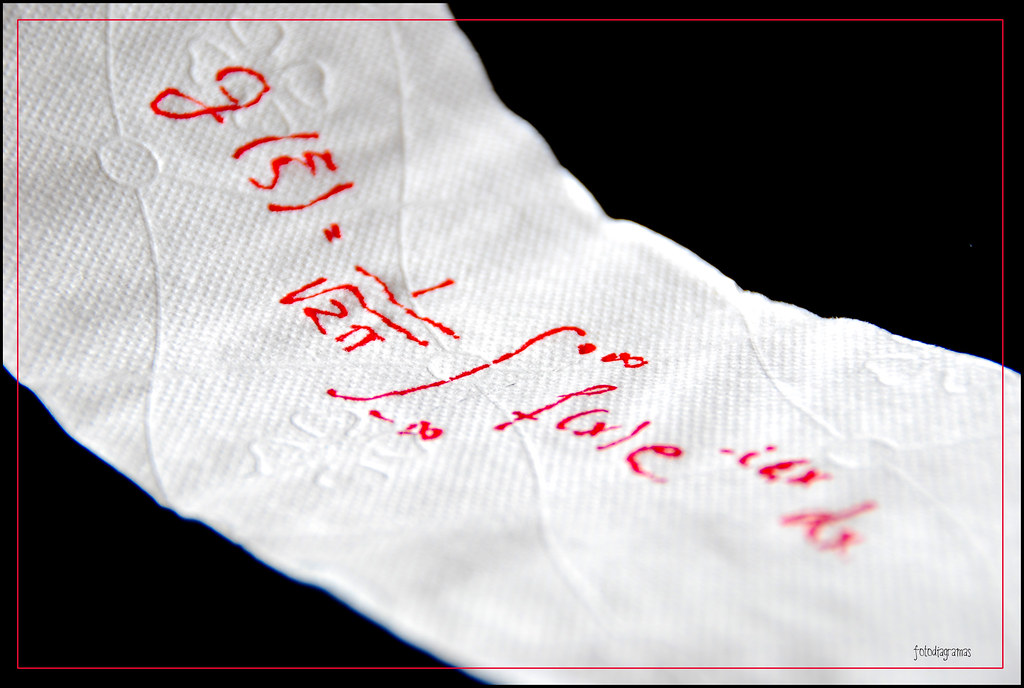 g(ξ) = 1/√2π ∫-∞+∞ f(x)e^-iξx dx
fotodiagramas